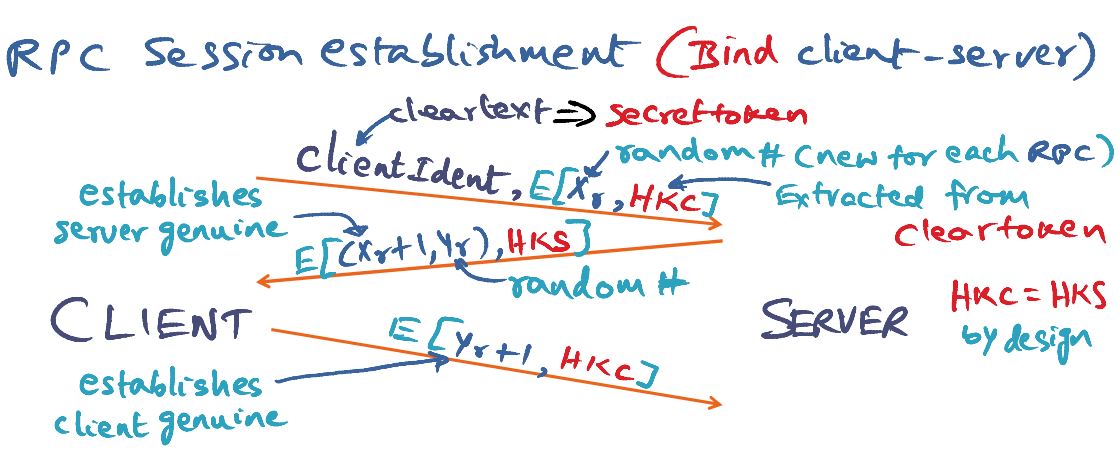 RPC Session establishment (Bind client-server)
cleartext => secrettoken
ClientIdent, E[Xr, HKC]
random # (new for each RPC)
Extracted from
cleartoken
establishes
server genuine
E[(Xr+1, Yr), HKS]
random #
CLIENT
SERVER
HKC = HKS
by design
E[Yr+1, HKC]
establishes
client genuine